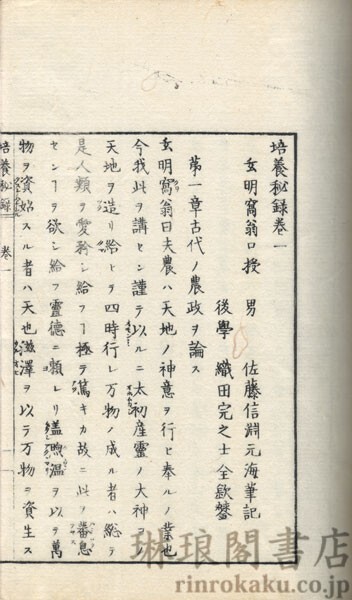 培養秘録巻一
玄明窩翁口授 男 佐藤信淵元海筆記
後學 織田完之士全歓 
第一章古代ノ農政ヲ論ス
玄明窩翁曰夫農ハ天地ノ神意ヲ行ヒ奉ルノ業也
今我此ヲ講セン謹テ以ルニ太初産靈ノ大神ヨリ
天地ヲ造リ給ヒヲ四時行レ万物ノ成ル者ハ総テ
是人類ヲ愛矜シ給フヿ極テ篤キカ故ニ此蕃息
センヿヲ欲シ給フ靈德ニ頼レリ蓋煦温ヲ以テ萬
物ヲ資始スル者ハ天也滋澤ヲ以ラ万物ニ資生ス
培養秘録 巻一
琳琅閣書店
rinrokaku.co.jp